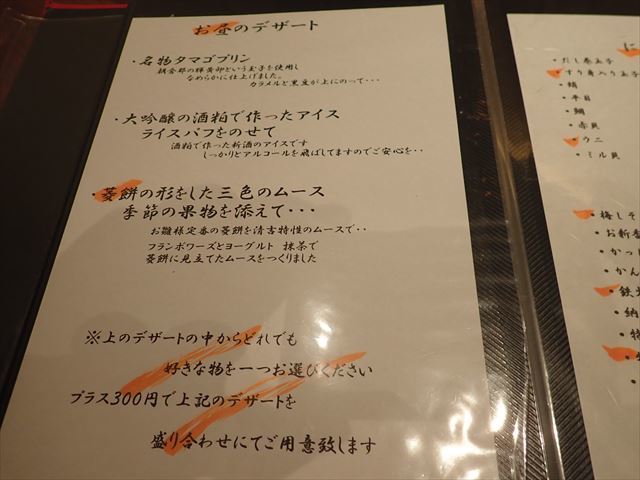 お昼のデザート
・名物タマゴプリン
朝倉郡の輝黄卵という玉子を使用し
なめらかに仕上げました。
カラメルと黒豆が上にのって・・・
・大吟醸の酒粕で作ったアイス
ライスパフをのせて
酒粕で作った新酒のアイスです
しっかりとアルコールを飛ばしてますのでご安心を・・
・菱餅の形をした三色のムース
季節の果物を添えて・・・
お雛様定番の菱餅を清古特性のムースで・・
フランボワーズとヨーグルト 抹茶で
菱餅に見立てたムースをつくりました
※上のデザートの中からどれでも
好きな物を一つお選びください
プラス300円で上記のデザートを
盛り合わせにてご用意致します
に
・だし巻玉子
・すり身入り玉子
・平目
・鯛
・赤貝
・ウニ
・ミル貝
・梅しそ
・お新香
・かっ
・かん
・鉄火
・納
・特